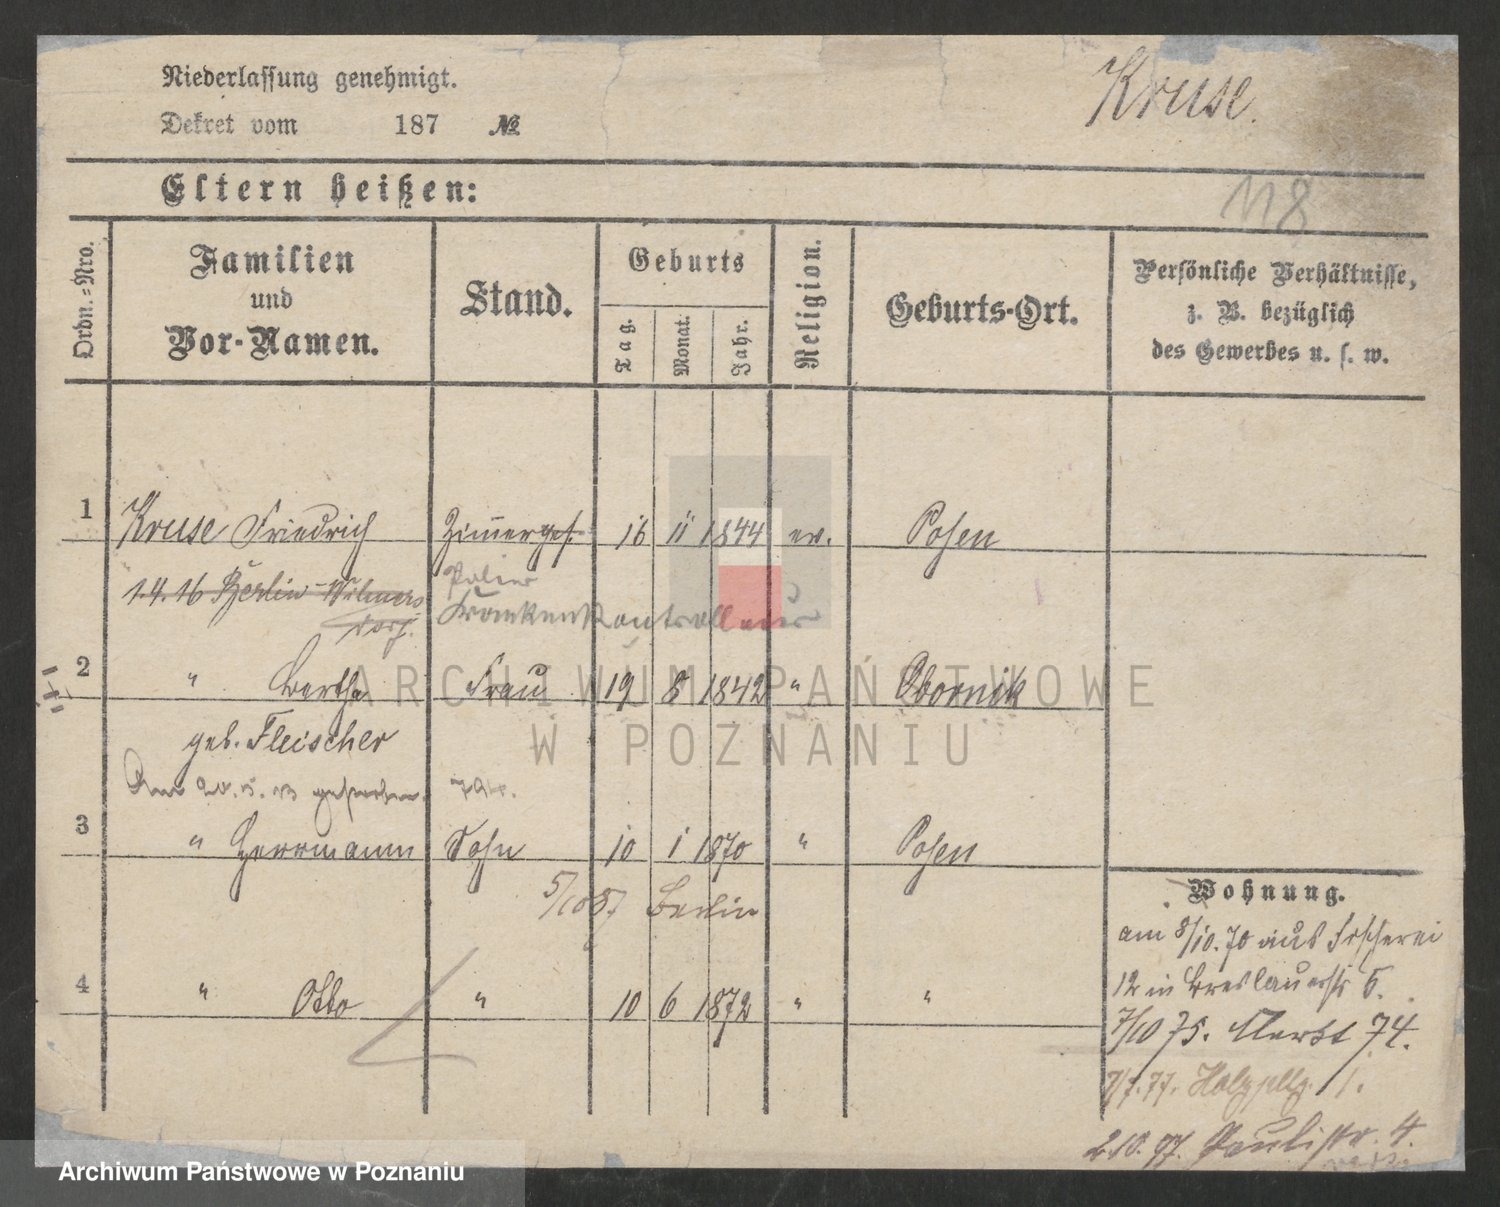 Niederlassung genehmigt.
Kruse.
Dekret vom 187 №
Eltern heißen:
118
Ordn.-Nro.
Familien
und
Vor-Namen.
Stand.
Geburts
Tag.
Monat.
Jahr.
Religion.
Geburts-Ort.
Persönliche Verhältnisse,
z. B. bezüglich
des Gewerbes u. s. w.
1 Kruse Friedrich Zimmerges. 16 11 1844 ev. Posen
1.4.16 Berlin-Wilmers
dorf.
Polier
Krankenkontrolleur
2 " Bertha Frau 19 8 1842 " Obornik
geb. Fleischer
Am gestorben.
3 " Herrmann Sohn 10 1 1870 " Posen
5/10 87 Berlin
4 " Otto " 10 6 1872 " "
Wohnung.
am 8/10.70 aus Fischerei
12 in Breslauerstr 5.
7/10 75. Markt 74.
7/7.77. 1.
2 10. 97. Paulistr. 4.
ARCHIWUM PAŃSTWOWE
W POZNANIU
Archiwum Państwowe w Poznaniu